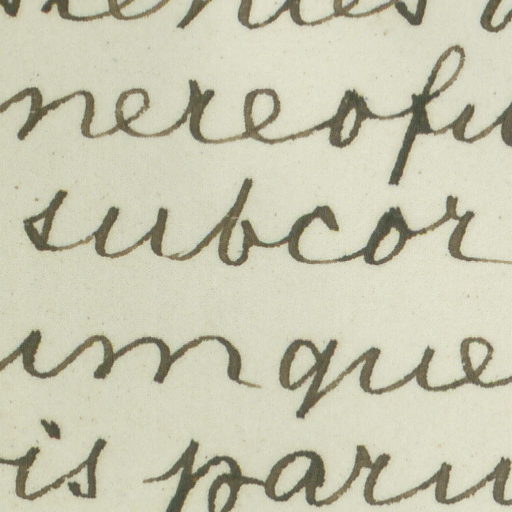 nereofu
subcor
um que
is paru